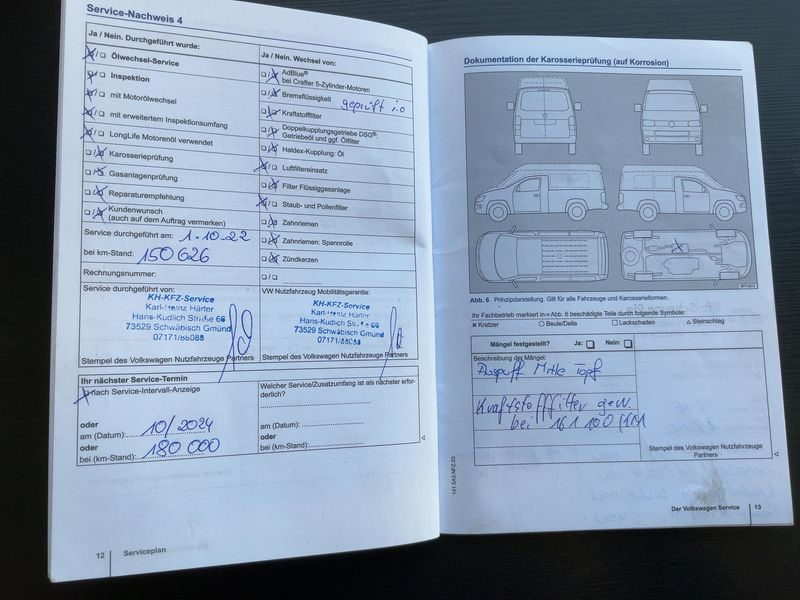 Service-Nachweis 4
Ja / Nein. Durchgeführt wurde:
Ölwechsel-Service
Inspektion
mit Motorölwechsel
mit erweitertem Inspektionsumfang
LongLife Motorenöl verwendet
Karosserieprüfung
Gasanlagenprüfung
Reparaturempfehlung
Kundenwunsch
(auch auf dem Auftrag vermerken)
Service durchgeführt am: 1.10.22
bei km-Stand: 150 626
Rechnungsnummer:
Service durchgeführt von:
KH-KFZ-Service
Karl-Heinz Härter
Hans-Kudlich Straße 66
73529 Schwäbisch Gmünd
07171/88088
Stempel des Volkswagen Nutzfahrzeuge Partners
Ja / Nein. Wechsel von:
AdBlue®
bei Crafter 5-Zylinder-Motoren
Bremsflüssigkeit geprüft i.o
Kraftstofffilter
Doppelkupplungsgetriebe DSG®:
Getriebeöl und ggf. Ölfilter
Haldex-Kupplung: Öl
Luftfiltereinsatz
Filter Flüssiggasanlage
Staub- und Pollenfilter
Zahnriemen
Zahnriemen: Spannrolle
Zündkerzen
VW Nutzfahrzeug Mobilitätsgarantie:
KH-KFZ-Service
Karl-Heinz Härter
Hans-Kudlich Straße 66
73529 Schwäbisch Gmünd
07171/88088
Stempel des Volkswagen Nutzfahrzeuge Partners
Ihr nächster Service-Termin
nach Service-Intervall-Anzeige
oder
am (Datum): 10/2024
oder
bei (km-Stand): 180 000
Welcher Service/Zusatzumfang ist als nächster erfor-
derlich?
am (Datum):
oder
bei (km-Stand):
12 Serviceplan
Dokumentation der Karosserieprüfung (auf Korrosion)
Abb. 6 Prinzipdarstellung. Gilt für alle Fahrzeuge und Karosserieformen.
Ihr Fachbetrieb markiert in Abb. 6 beschädigte Teile durch folgende Symbole:
x Kratzer ○ Beule/Delle □ Lackschaden △ Steinschlag
Mängel festgestellt? Ja: Nein:
Beschreibung der Mängel:
Auspuff Mitte Topf
Kraftstofffilter gew
bei 161 100 KM
Stempel des Volkswagen Nutzfahrzeuge
Partners
141.5A3.NFZ.03
Der Volkswagen Service 13